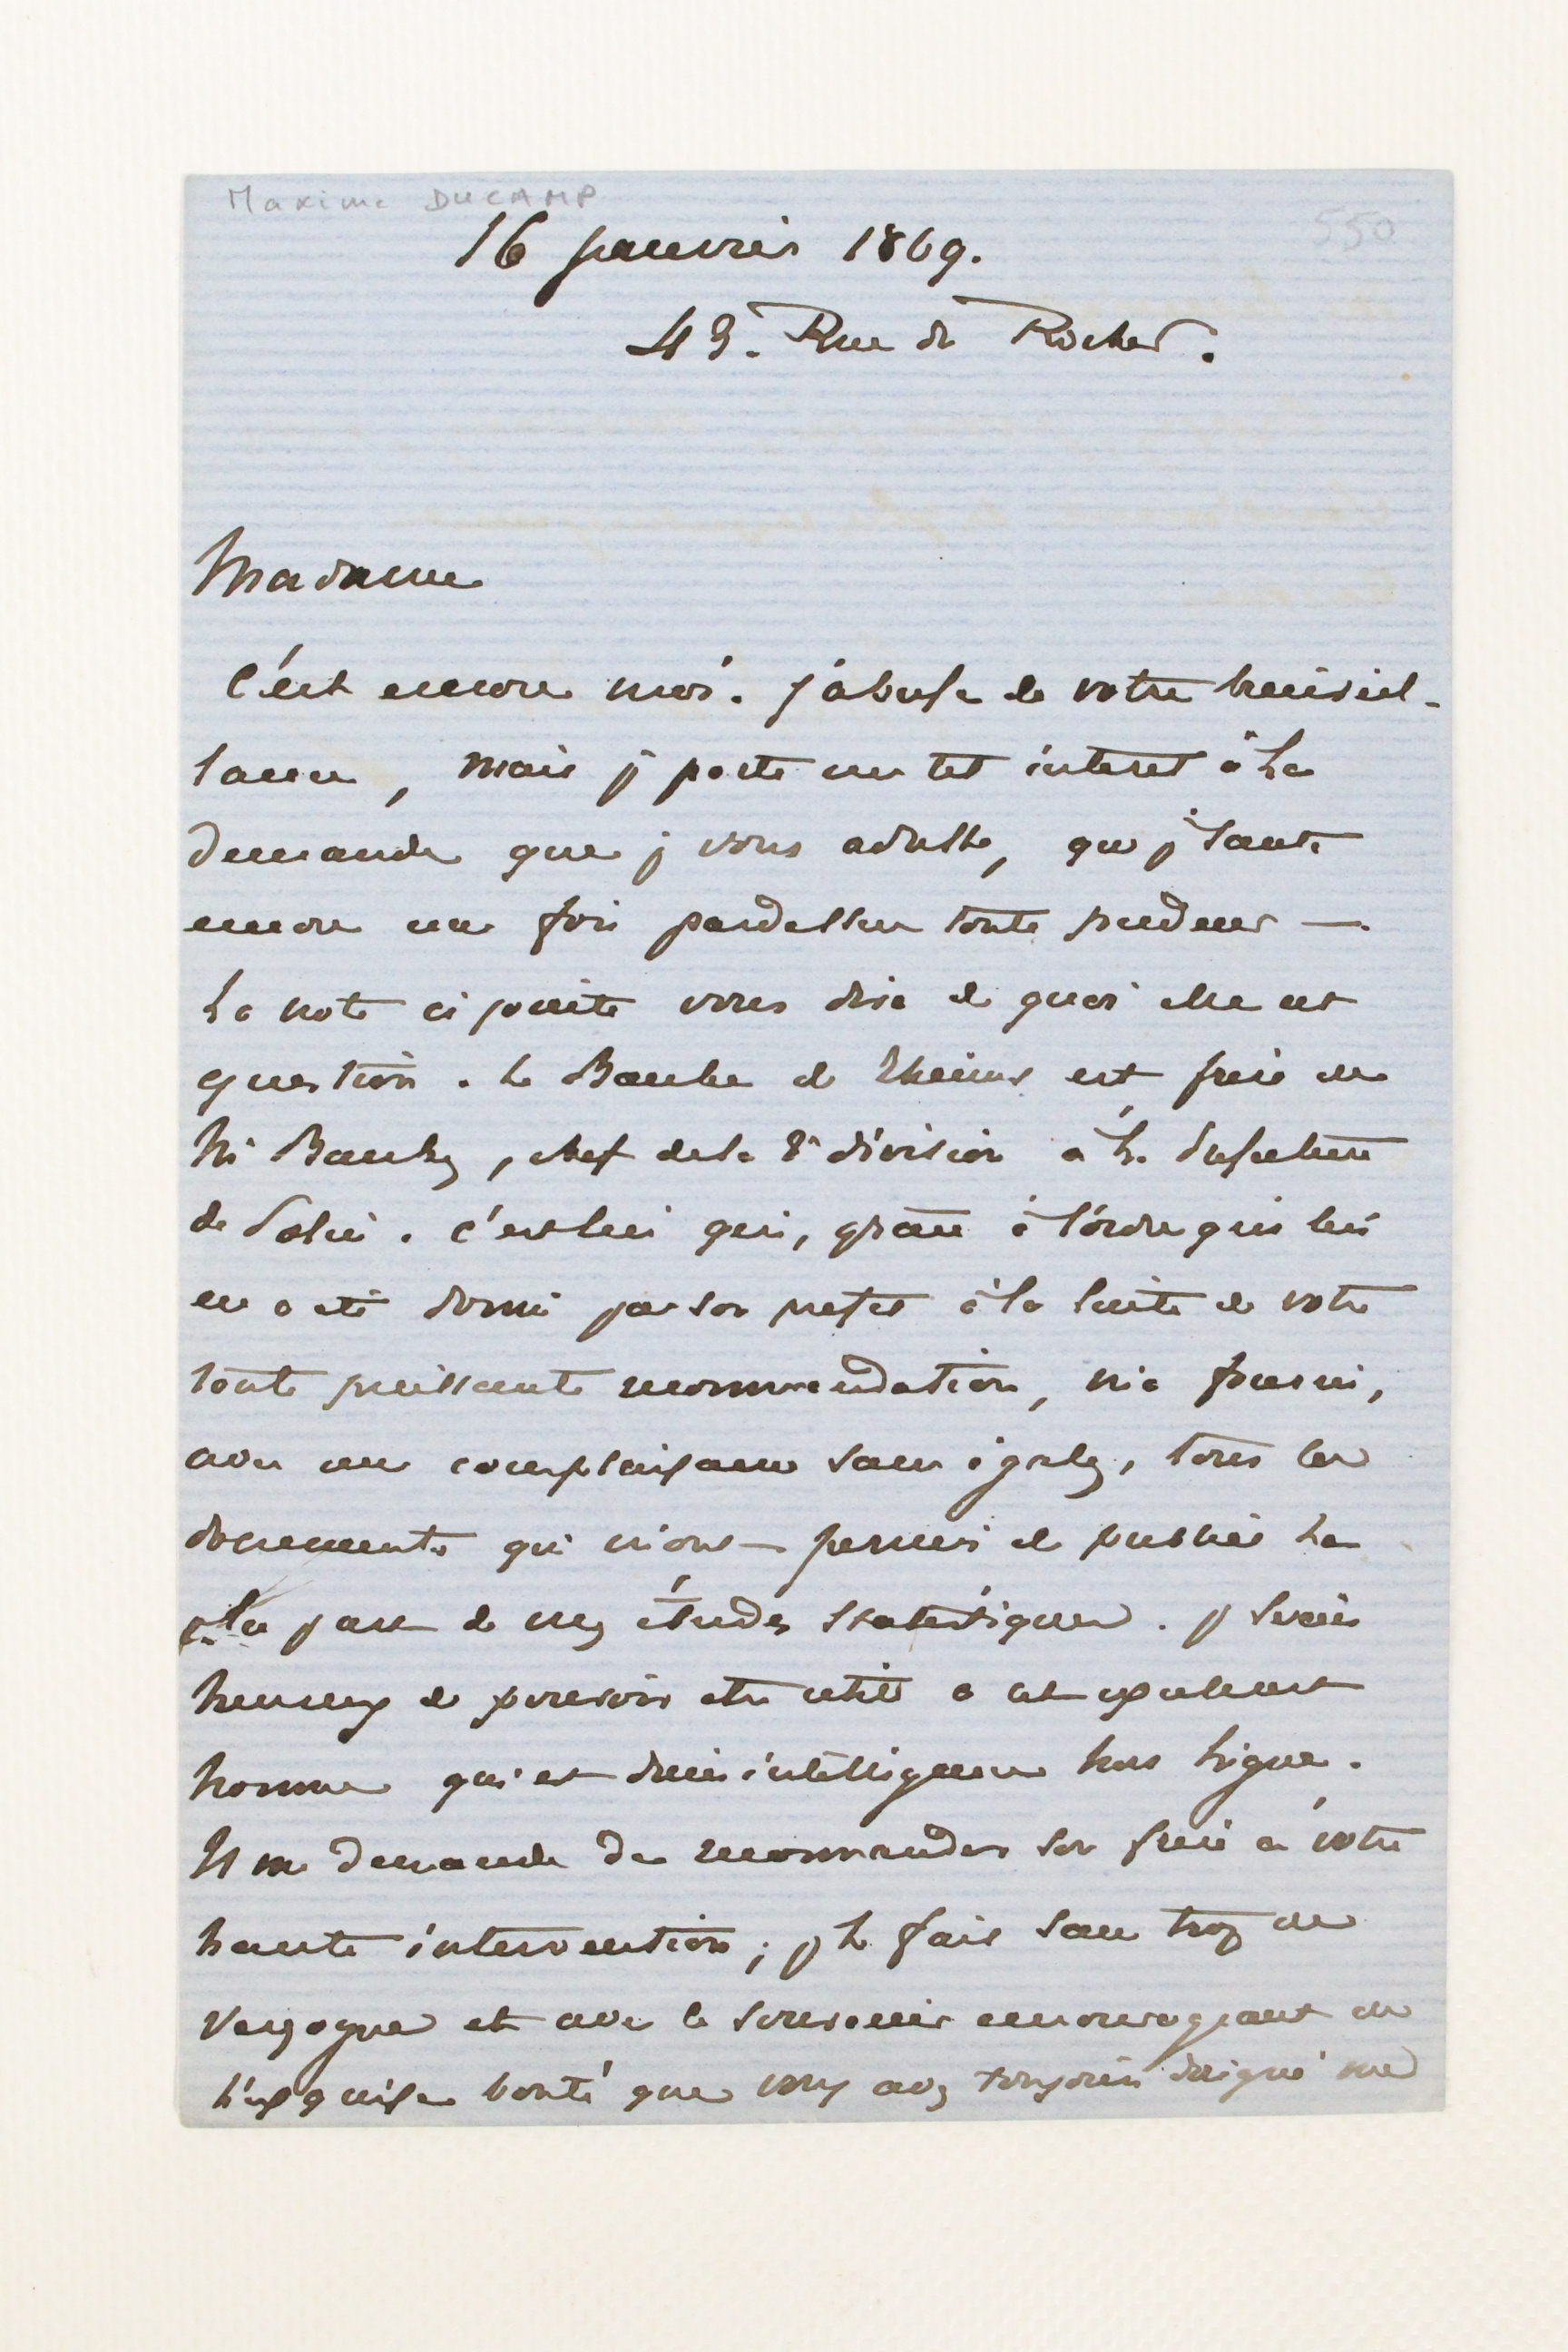 Maxime DUCAMP
550
16 janvier 1869.
43. Rue du Rocher.
Madame
C'est encore moi. j'abuse de votre bienveil-
lance, mais je porte un tel interet à la
demande que je vous adresse, que je saute
encore une fois pardessus toute pudeur —.
La note ci jointe vous dira de quoi elle est
question. Le de Rheims est frère de
Mr , chef de la 2e division à la
de Police. c'est lui qui, grâce à l'ordre qui lui
en a été donné par son prefet à la suite de votre
toute puissante recommendation, m'a fourni,
avec une complaisance sans égale, tous les
documents qui m'ont permis de publier la
de mes études . je serais
heureux de pouvoir etre utile à cet excellent
homme qui est d'une intelligence hors ligne.
Il me demande de recommander son frère à votre
haute intervention; je le fais sans trop de
vergogne et avec le souvenir encourageant de
l'exquise bonté que vous avez toujours daigné me